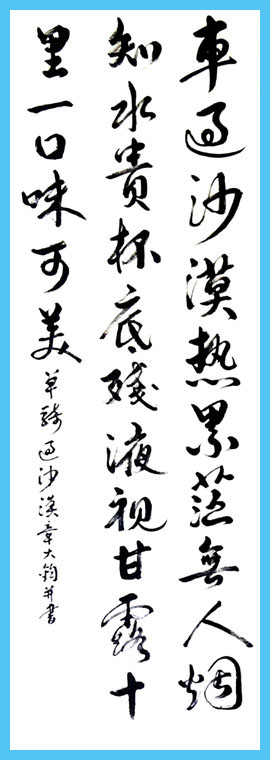 車過沙漠熱累茫無人烟
知水貴杯底殘液視甘露十
里一口味可美
單騎過沙漠章大鈞并書